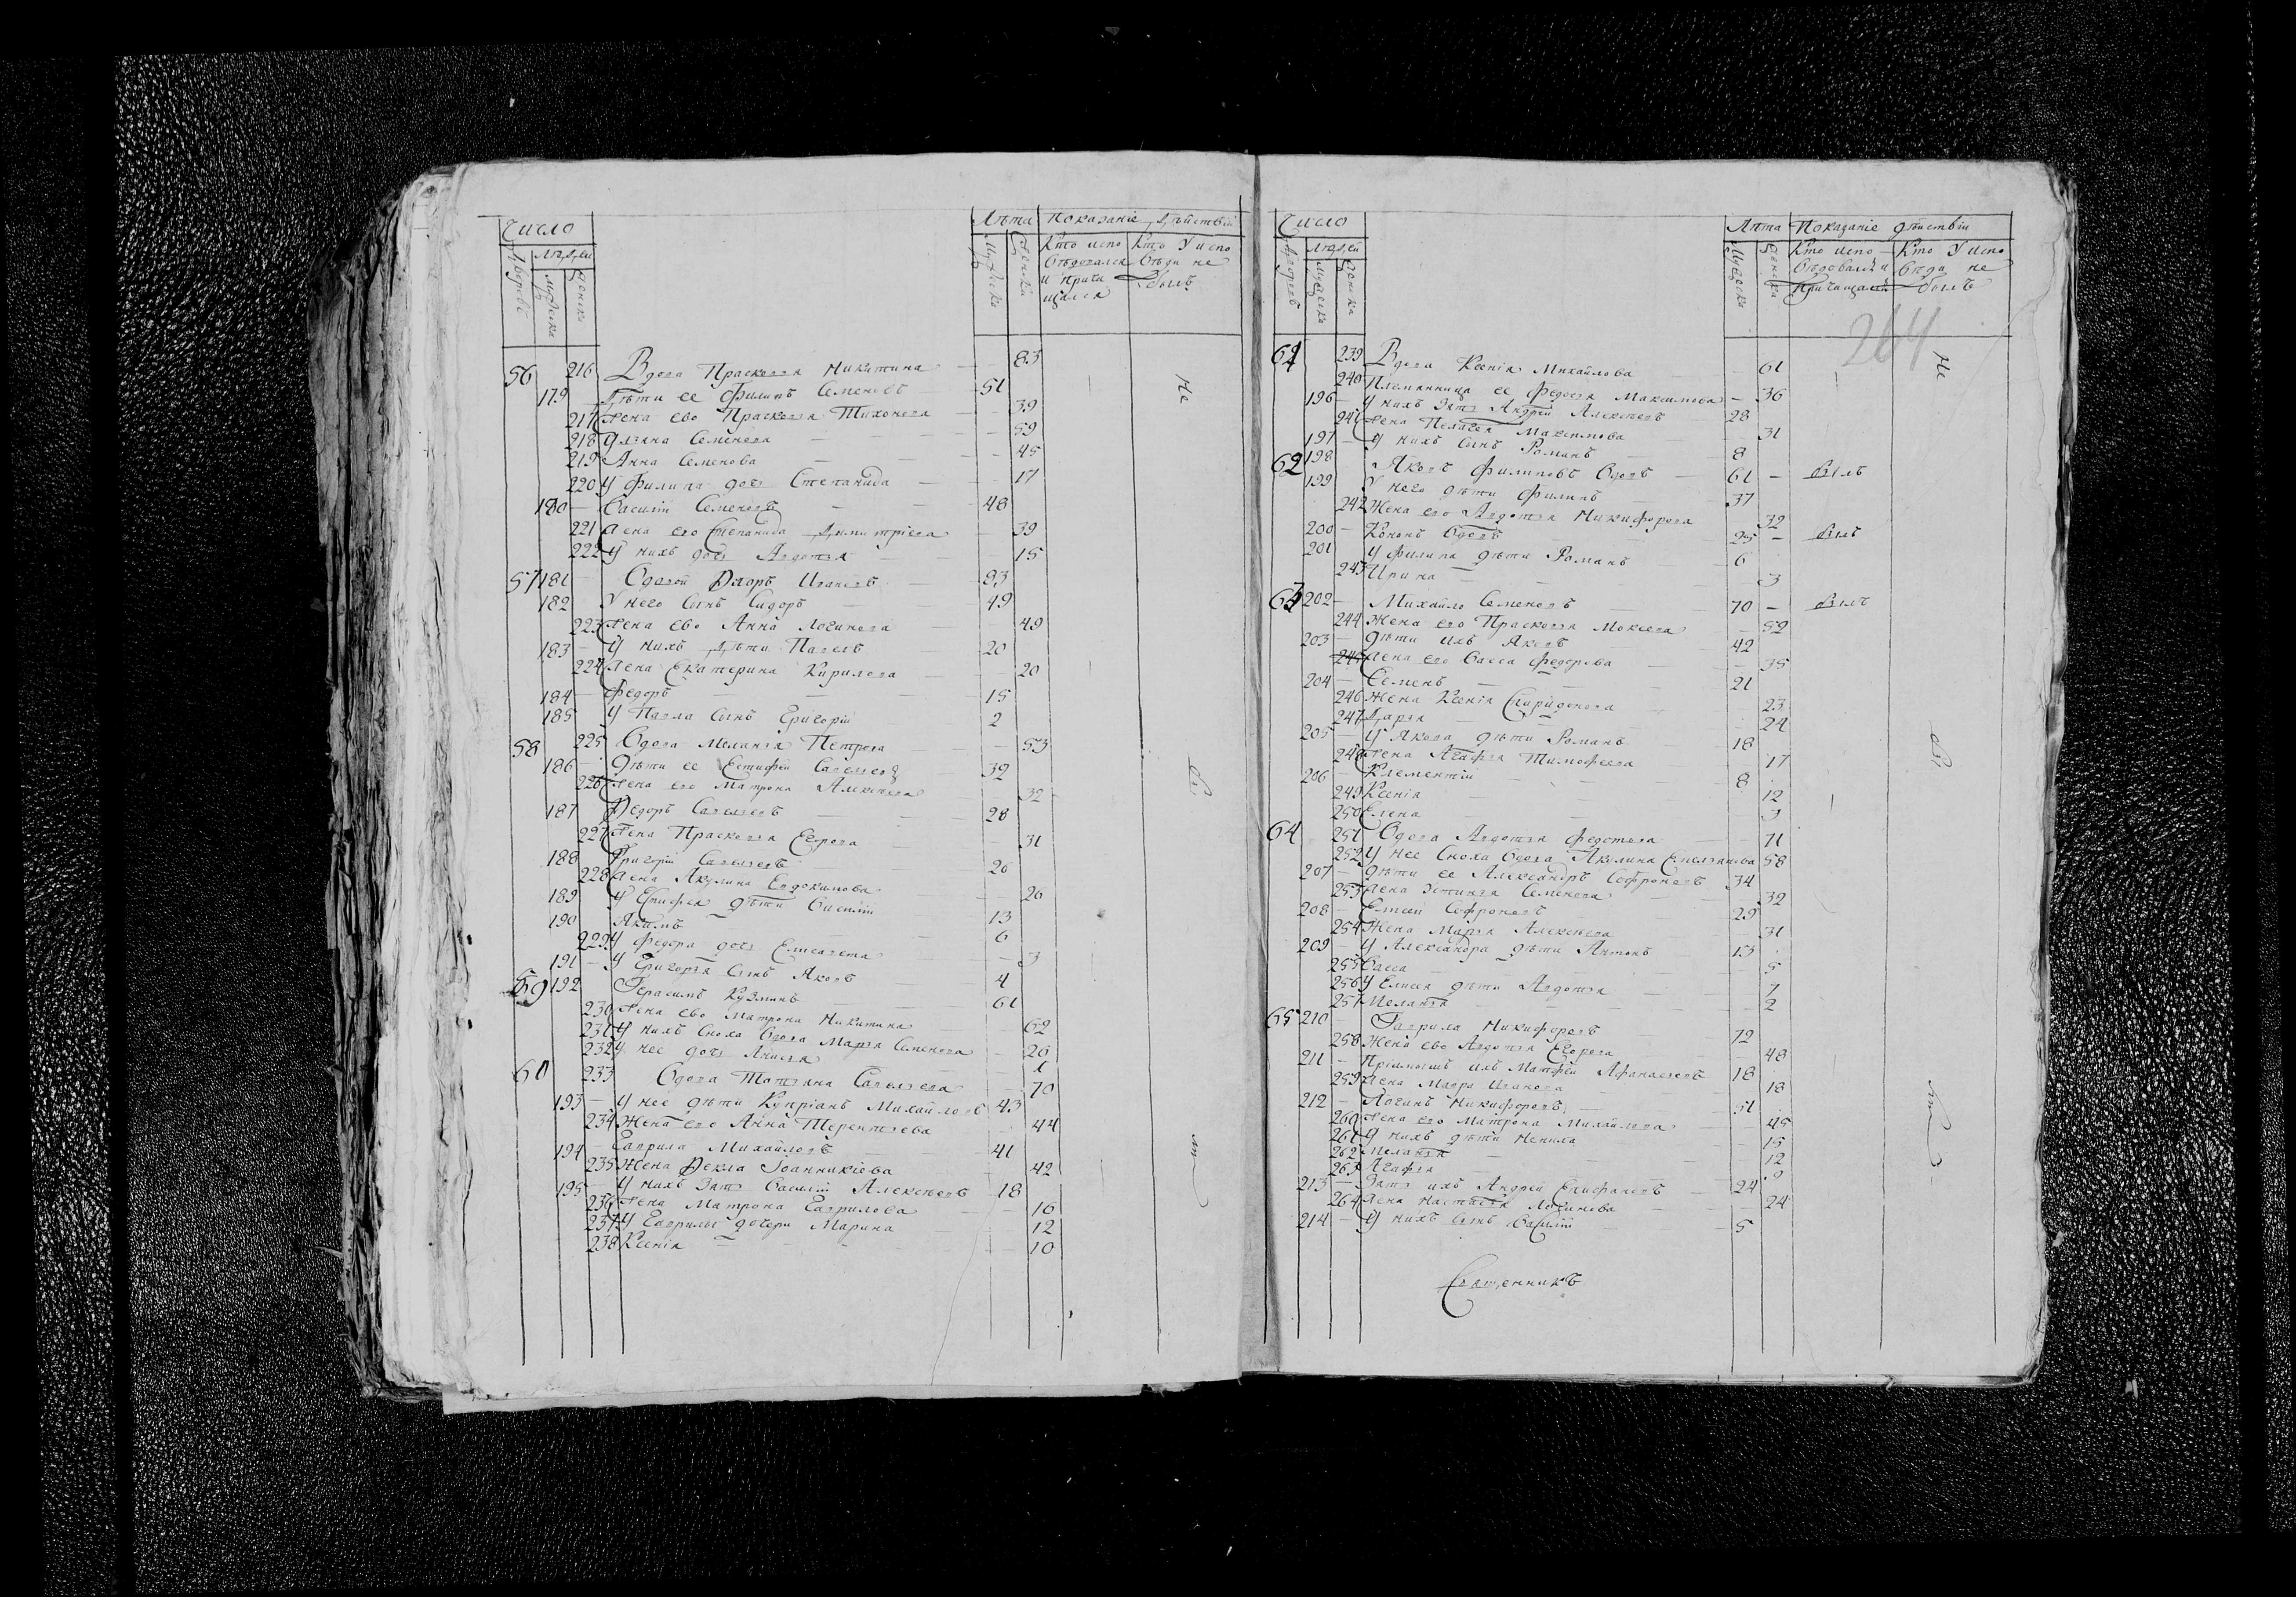 Число
Людей
Лѣта Показаніе Дѣйствій
Дворовъ
Мужеска
Женска
Мужеска
Женска
Кто испо
вѣдовался
и прича
щался
Кто у испо
вѣди не
былъ
56 216 Вдова Прасковья Никитина 83
179 Дѣти ее Филипъ Семеновъ 51
217 Жена ево Прасковья Тихонова 39
218 Ульяна Семенова 59
219 Анна Семенова 45
220 У Филипа дочь Степанида 17
180 Василій Семеновъ 48
221 Жена его Степанида Димитріева 39
222 У нихъ дочь Авдотья 15
57 181 Вдовой Ѳедоръ Ивановъ 93
182 У него сынъ Сидоръ 49
223 Жена ево Анна Логинова 49
183 У нихъ дѣти Павелъ 20
224 Жена Екатерина Кирилова 20
184 Федоръ 15
185 У Павла сынъ Григорій 2
58 225 Вдова Меланья Петрова 53
186 Дѣти ее Савельевъ 32
226 Жена его Матрона Алексѣева 32
187 Ѳедоръ Савельевъ 28
227 Жена Прасковья Егорова 31
188 Григорій Савельевъ 20
228 Жена Акулина Евдокимова 20
189 У дѣти Василій 13
190 Якимъ 6
229 У Федора дочь Елисавета 3
191 У Григорья сынъ Яковъ 4
59 192 Герасимъ Кузминъ 61
230 Жена ево Матрона Никитина 62
231 У нихъ сноха вдова Марья Семенова 26
232 У нее дочь Анисья 1
60 233 Вдова Татьяна Савельева 70
193 У нее дѣти Купріанъ Михайловъ 43
234 Жена его Анна Терентьева 44
194 Гаврила Михайловъ 41
235 Жена Ѳекла Іоанникіева 42
195 У нихъ зять Василій Алексѣевъ 18
236 Жена Матрона Гаврилова 16
237 У Гаврилы дочери Марина 12
238 Ксенія 10
Не
Число
Людей
Лѣта Показаніе дѣйствій
Дворовъ
Мужеска
Женска
Мужеска
Женска
Кто испо
вѣдовался и
причащался
Кто у испо
вѣди не
былъ
264
61 239 Вдова Ксенія Михайлова 61
240 Племянница ее Федосья Максимова 36
196 У нихъ зять Андрей Алексѣевъ 28
241 Жена Пелагея Максимова 31
197 У нихъ сынъ Романъ 8
62 198 Яковъ Филиповъ вдовъ 61 былъ
199 У него дѣти Филипъ 37
242 Жена его Авдотья Никифорова 32
200 Кононъ вдовъ 25 былъ
201 У Филипа дѣти Романъ 6
243 Ирина 3
63 202 Михайло Семеновъ 70 былъ
244 Жена его Прасковья Мокеева 52
203 Дѣти ихъ Яковъ 42
245 Жена его Васса Федорова 35
204 Семенъ 21
246 Жена Ксенія Спиридонова 23
247 Дарья 24
205 У Якова дѣти Романъ 18
248 Жена Агафья Тимофеева 17
206 Клементій 8
249 Ксенія 12
250 Елена 3
64 251 Вдова Авдотья Федотова 71
252 У нее сноха вдова Акулина Емельянова 58
207 Дѣти ее Александръ Софроновъ 34
253 Жена Устинья Семенова 32
208 Елисей Софроновъ 29
254 Жена Марья Алексѣева 31
209 У Александра дѣти Антонъ 13
255 Васса 5
256 У Елисея дѣти Авдотья 7
257 Меланья 2
65 210 Гаврила Никифоровъ 72
258 Жена ево Авдотья Егорова 48
211 Пріимышъ ихъ Матфей Афанасьевъ 18
259 Жена Мавра Иванова 18
212 Логинъ Никифоровъ 51
260 Жена его Матрона Михайлова 45
261 У нихъ дѣти Ненила 15
262 Меланья 12
263 Агафья 9
213 Зять ихъ Андрей Епифановъ 24
264 Жена Настасья Логинова 24
214 У нихъ сынъ Василій 5
Не
Священникъ